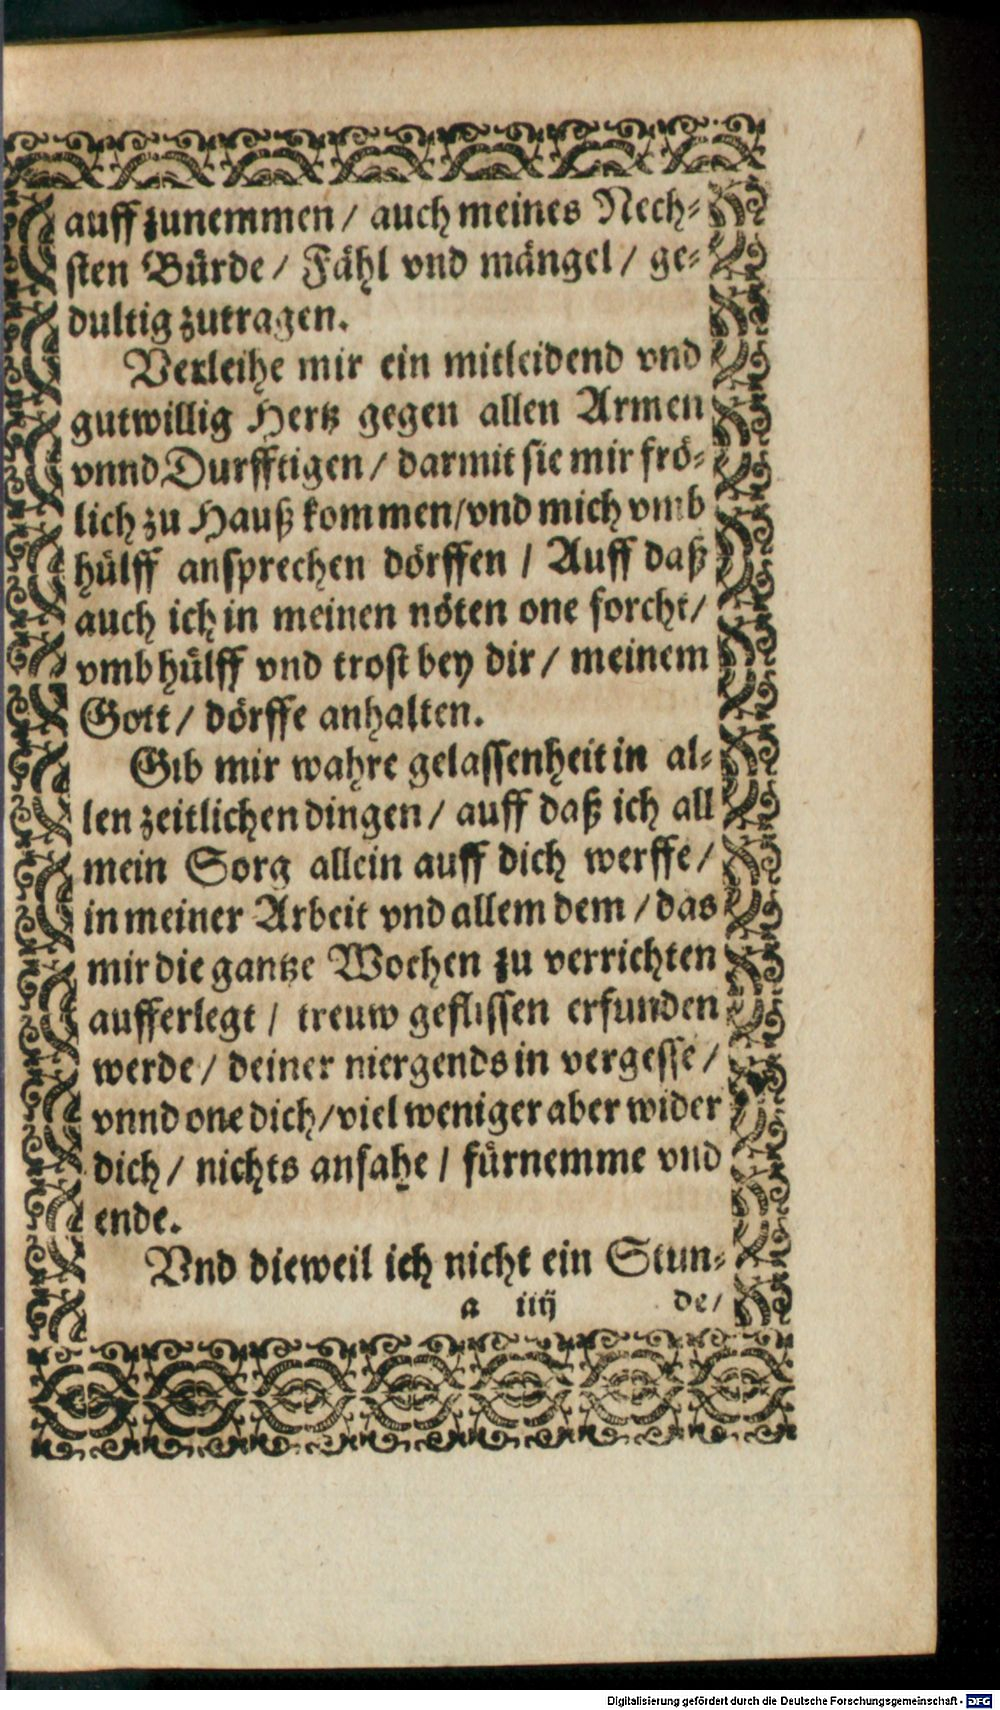 auff zunemmen / auch meines Nech-
sten Bürde / Fähl vnd mängel / ge-
dultig zutragen.
Verleihe mir ein mitleidend vnd
gutwillig Hertz gegen allen Armen
vnnd Durfftigen / darmit sie mir frö-
lich zu Hauß kommen / vnd mich vmb
hülff ansprechen dörffen / Auff daß
auch ich in meinen nöten one forcht /
vmb hülff vnd trost bey dir / meinem
Gott / dörffe anhalten.
Gib mir wahre gelassenheit in al-
len zeitlichen dingen / auff daß ich all
mein Sorg allein auff dich werffe /
in meiner Arbeit vnd allem dem / das
mir die gantze Wochen zu verrichten
aufferlegt / treuw geflissen erfunden
werde / deiner niergends in vergesse /
vnnd one dich / viel weniger aber wider
dich / nichts anfahe / fürnemme vnd
ende.
Vnd dieweil ich nicht ein Stun-
a iiij de /
Digitalisierung gefördert durch die Deutsche Forschungsgemeinschaft - DFG